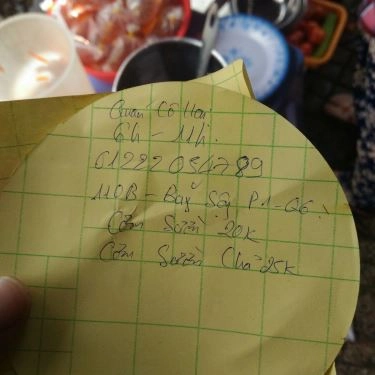 Quán Cô Hai
6h - 11h.
01222054789
110B - Bãi Sậy P1-Q6.
Cơm Sườn 20k
Cơm Sườn Chả 25k